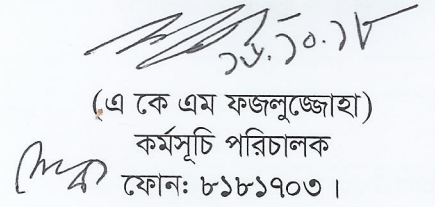 ১৬.১০.১৮
(এ কে এম ফজলুজ্জোহা)
কর্মসূচি পরিচালক
ফোন: ৮১৮১৭০৩।